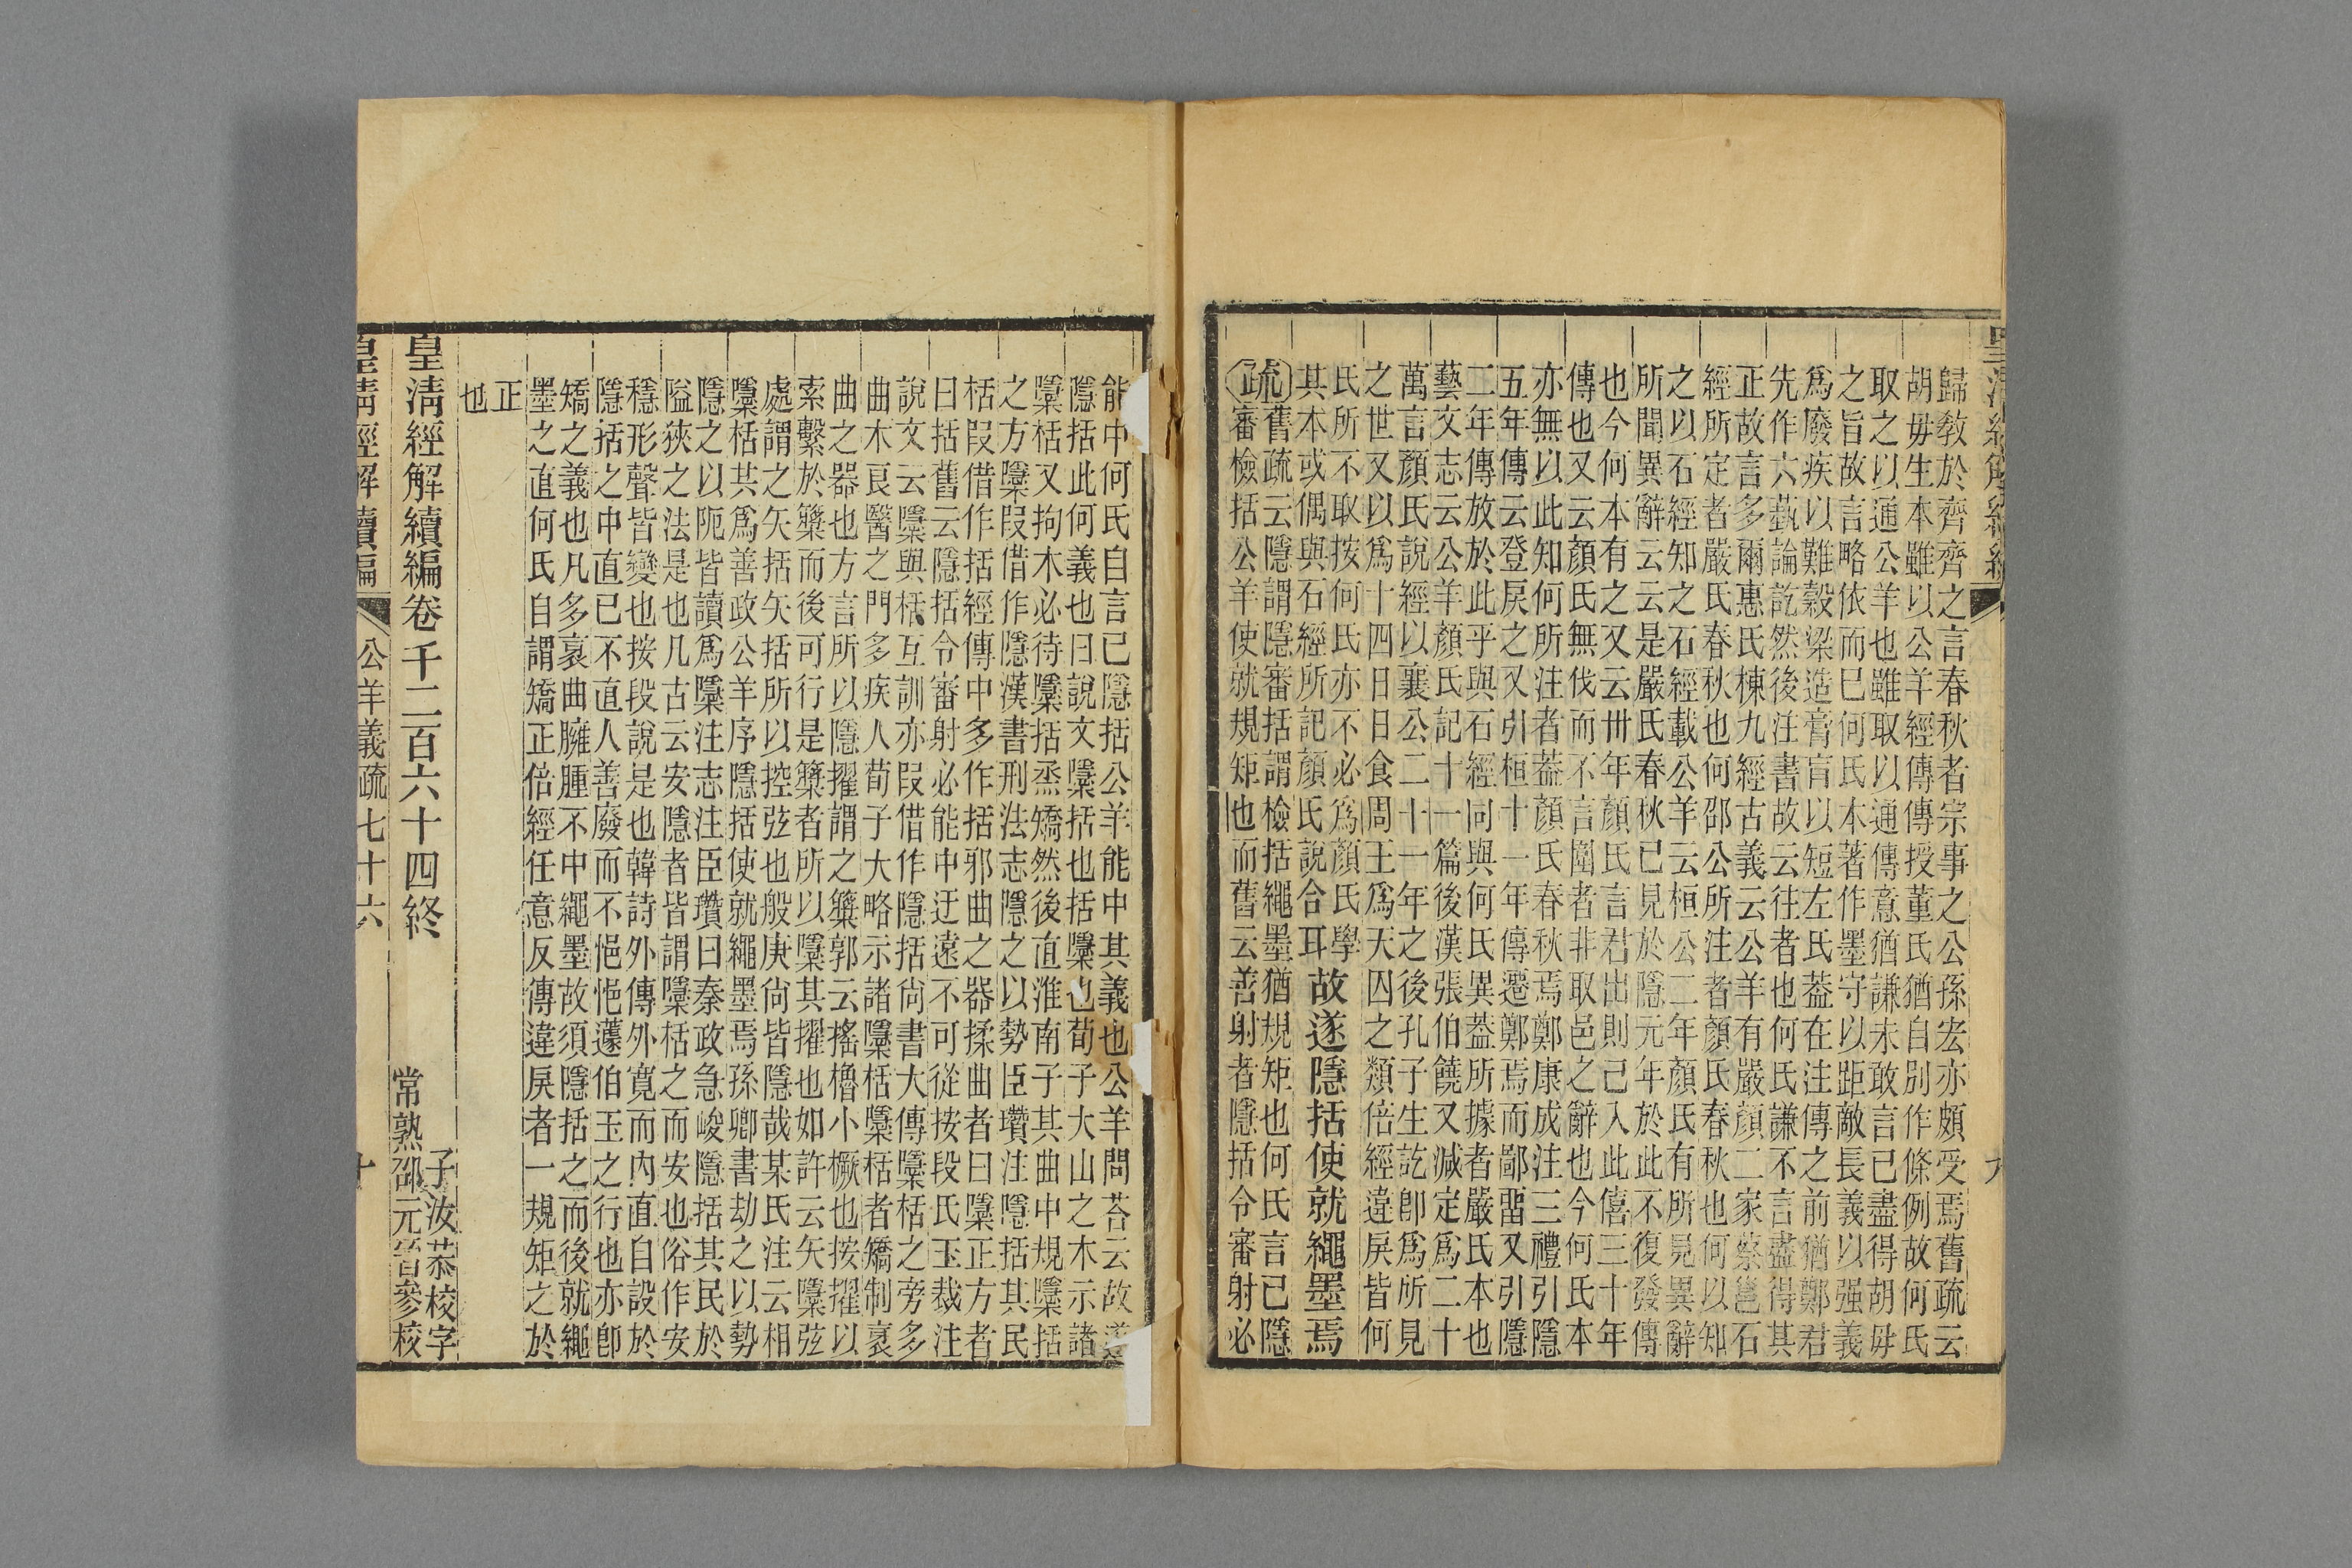 皇清經解續編
九
歸敎於齊齊之言春秋者宗事之公孫宏亦頗受焉舊疏云
胡毋生本雖以公羊經傳傳授董氏猶自別作條例故何氏
取之以通公羊也雖取以通傳意猶謙未敢言已盡得胡毋
之旨故言略依而已何氏本著作墨守以距敵長義以强義
爲廢疾以難穀梁造膏肓以短左氏葢在注傳之前猶鄭君
先作六蓺論訖然後注書故云往者也何氏謙不言盡得其
正故言多爾惠氏棟九經古義云公羊有嚴顏二家蔡邕石
經所定者嚴氏春秋也何邵公所注者顏氏春秋也何以知
之以石經知之石經載公羊云桓公二年顏氏有所見異辭
所聞異辭云云是嚴氏春秋已見於隱元年於此不復發傳
也今何本有之又云卅年顏氏言君出則已入此僖三十年
傳也又云顏氏無伐而不言圍者非取邑之辭也今何氏本
亦無以此知何所注者葢顏氏春秋焉鄭康成注三禮引隱
五年傳云登戾之又引桓十一年傳遷鄭焉而鄙畱又引隱
二年傳放於此乎與石經同與何氏異葢所據者嚴氏本也
藝文志云公羊顏氏記十一篇後漢張伯饒又減定爲二十
萬言顏氏說經以襄公二十一年之後孔子生訖卽爲所見
之世又以爲十四日日食周王爲天囚之類倍經違戾皆何
氏所不取按何氏亦不必爲顏氏學
其本或偶與石經所記顏氏說合耳
故遂隱括使就繩墨焉
疏舊疏云隱謂隱審括謂檢括繩墨猶規矩也何氏言已隱
審檢括公羊使就規矩也而舊云善射者隱括令審射必
能中何氏自言已隱括公羊能中其義也公羊問荅云故遂
隱括此何義也曰說文檃括也括檃也荀子大山之木示諸
檃栝又拘木必待檃括烝矯然後直淮南子其曲中規檃括
之方檃叚借作隱漢書刑法志隱之以勢臣瓚注隱括其民
栝叚借作括經傳中多作括邪曲之器揉曲者曰檃正方者
曰括舊云隱括令審射必能中迂遠不可從按段氏玉裁注
說文云檃與栝互訓亦叚借作隱括尙書大傳檃栝之旁多
曲木良醫之門多疾人荀子大略示諸檃栝檃栝者矯制衺
曲之器也方言所以隱擢謂之䉛郭云搖櫓小橛也按擢以
索繫於䉛而後可行是䉛者所以檃其擢也如許云矢檃弦
處謂之矢括矢括所以控弦也般庚尙皆隱哉某氏注云相
檃栝其爲善政公羊序隱括使就繩墨焉孫卿書劫之以勢
隱之以阨皆讀爲檃注志注臣瓚曰秦政急峻隱括其民於
隘狹之法是也凡古云安隱者皆謂檃栝之而安也俗作安
穩形聲皆變也按段說是也韓詩外傳外寬而內直自設於
隱括之中直已不直人善廢而不悒悒蘧伯玉之行也亦卽
矯之義也凡多衺曲臃腫不中繩墨故須隱括之而後就繩
墨之直何氏自謂矯正倍經任意反傳違戾者一規矩之於
正
也
皇清經解續編卷千二百六十四終
子汝恭校字
常熟邵元晉參校
皇清經解續編
公羊義疏七十六
十